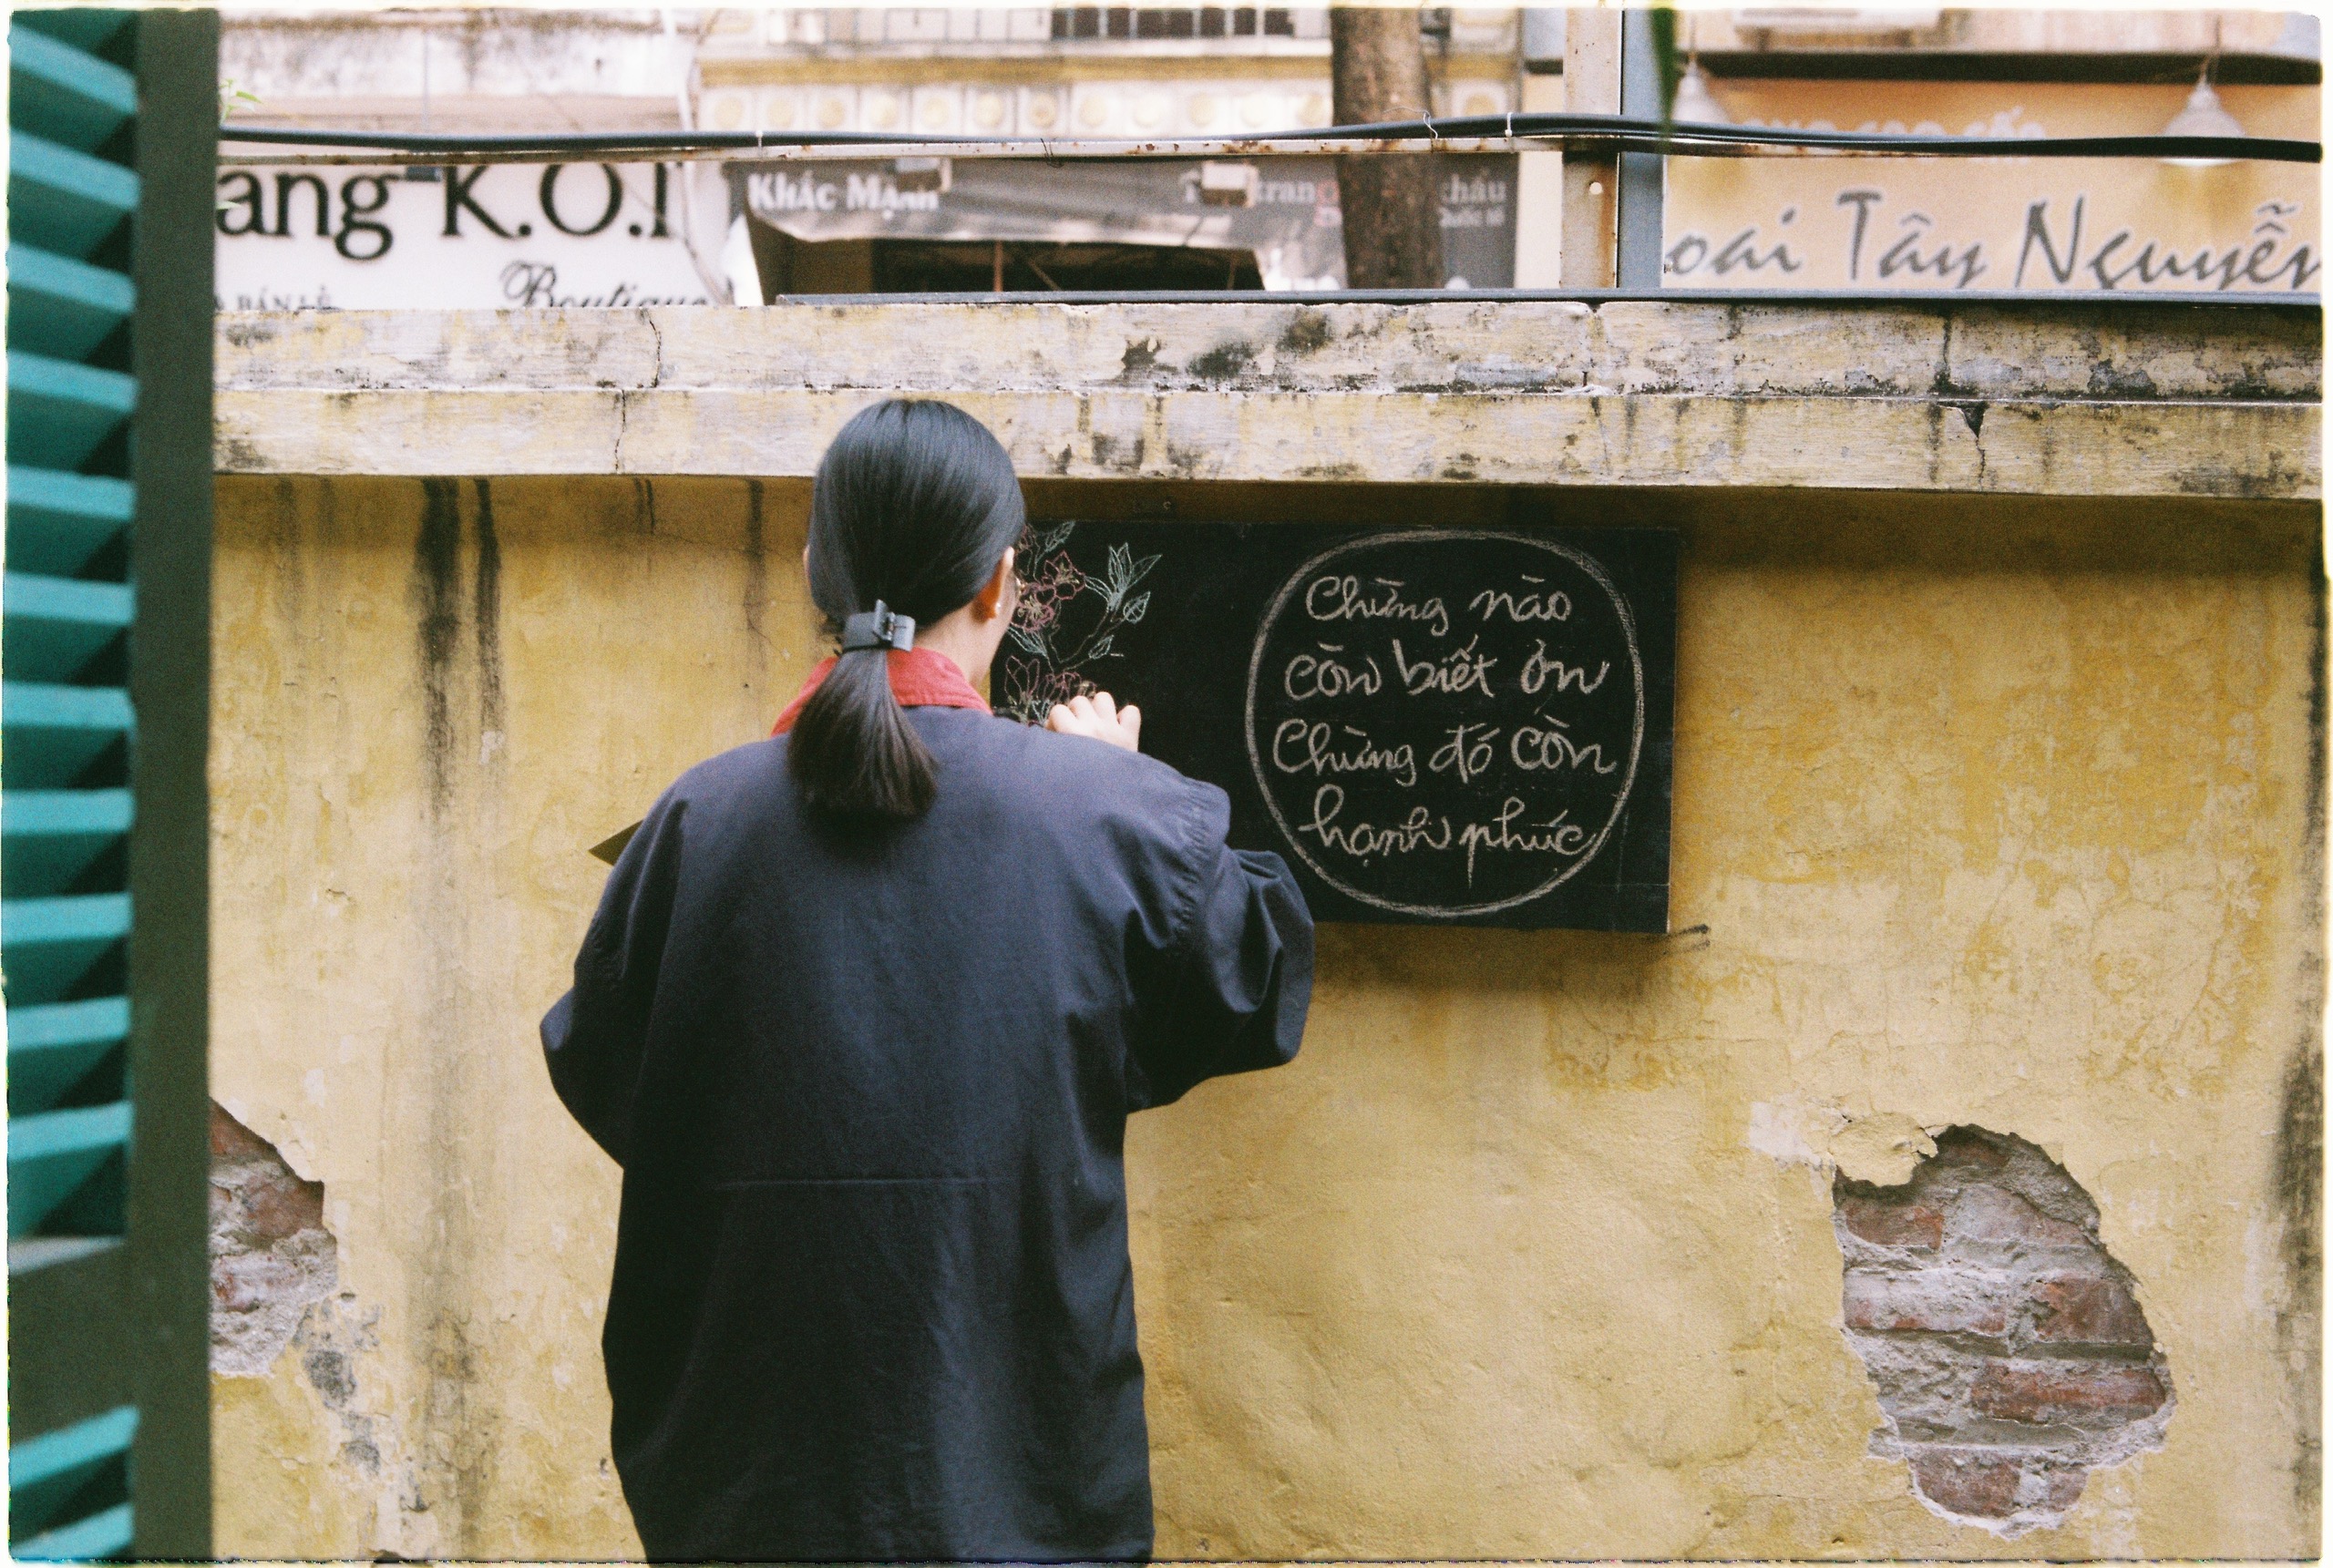 ang K.O.I
BÁN LẺ
Boutique
Khắc Mạnh
oai Tây Nguyên
Chừng nào
còn biết ơn
Chừng đó còn
hạnh phúc